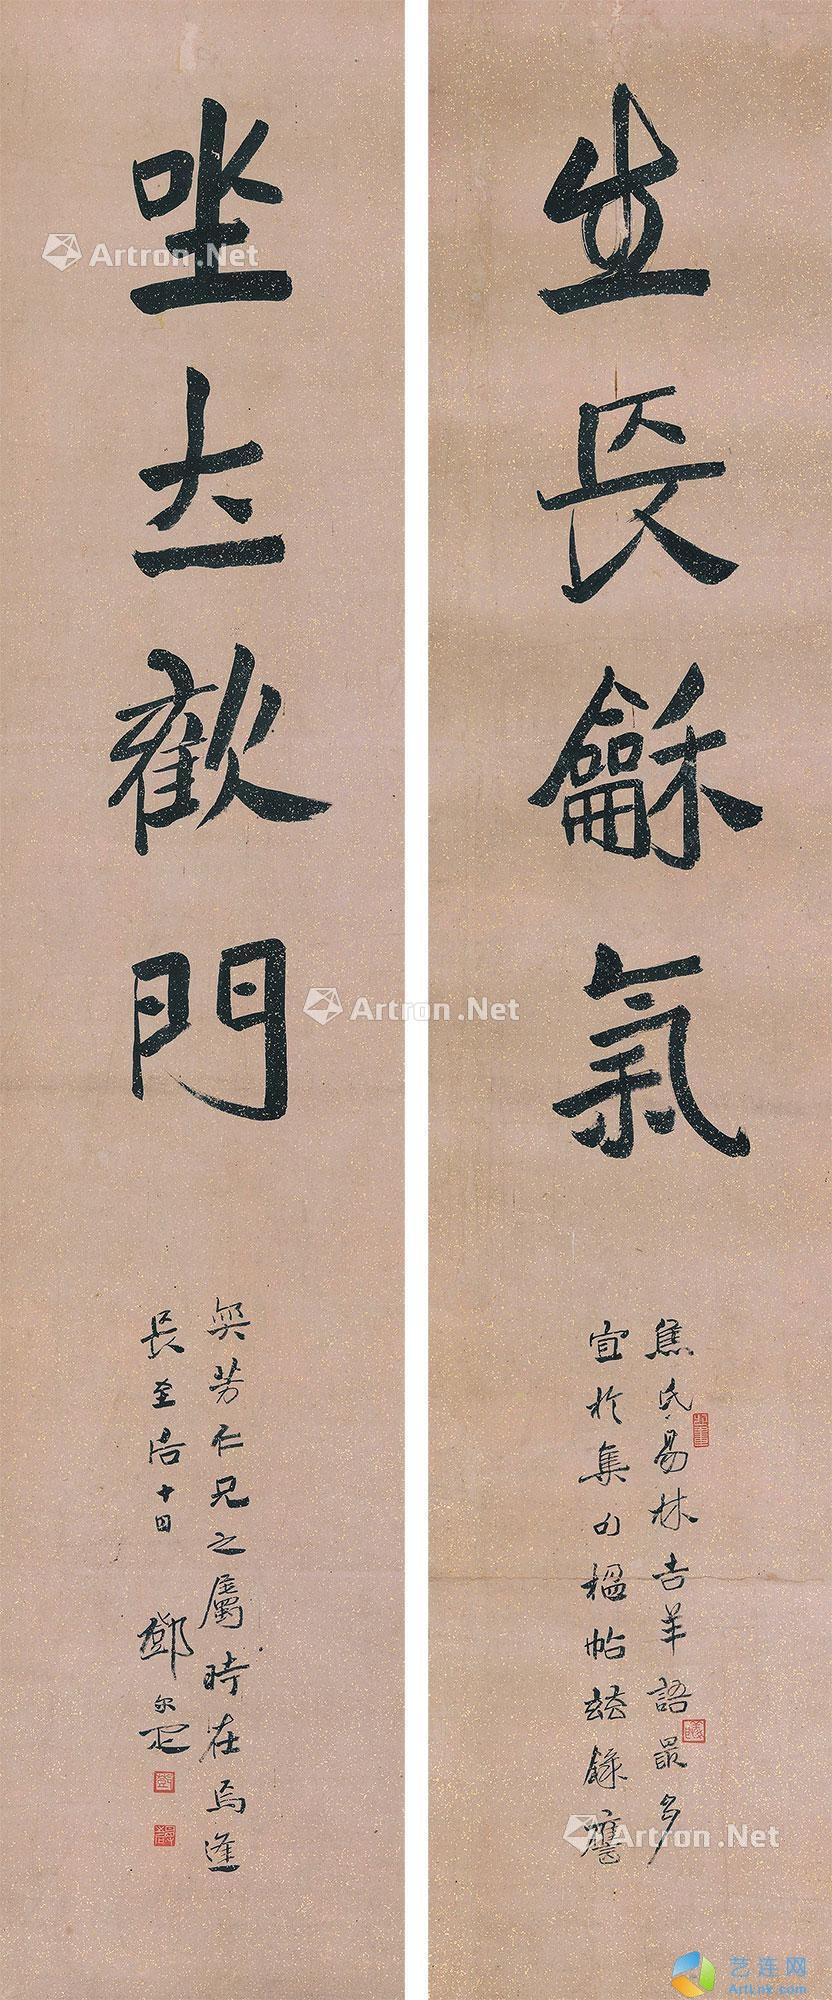 生長龢氣
焦氏易林吉羊語最多
宜於集句楹帖茲錄譍
坐立歡門
芳仁兄之屬時在焉逢
長至后十四 鄧尔疋
Artron.Net
Artron.Net
Artron.Net
艺连网
ArtLnk.com